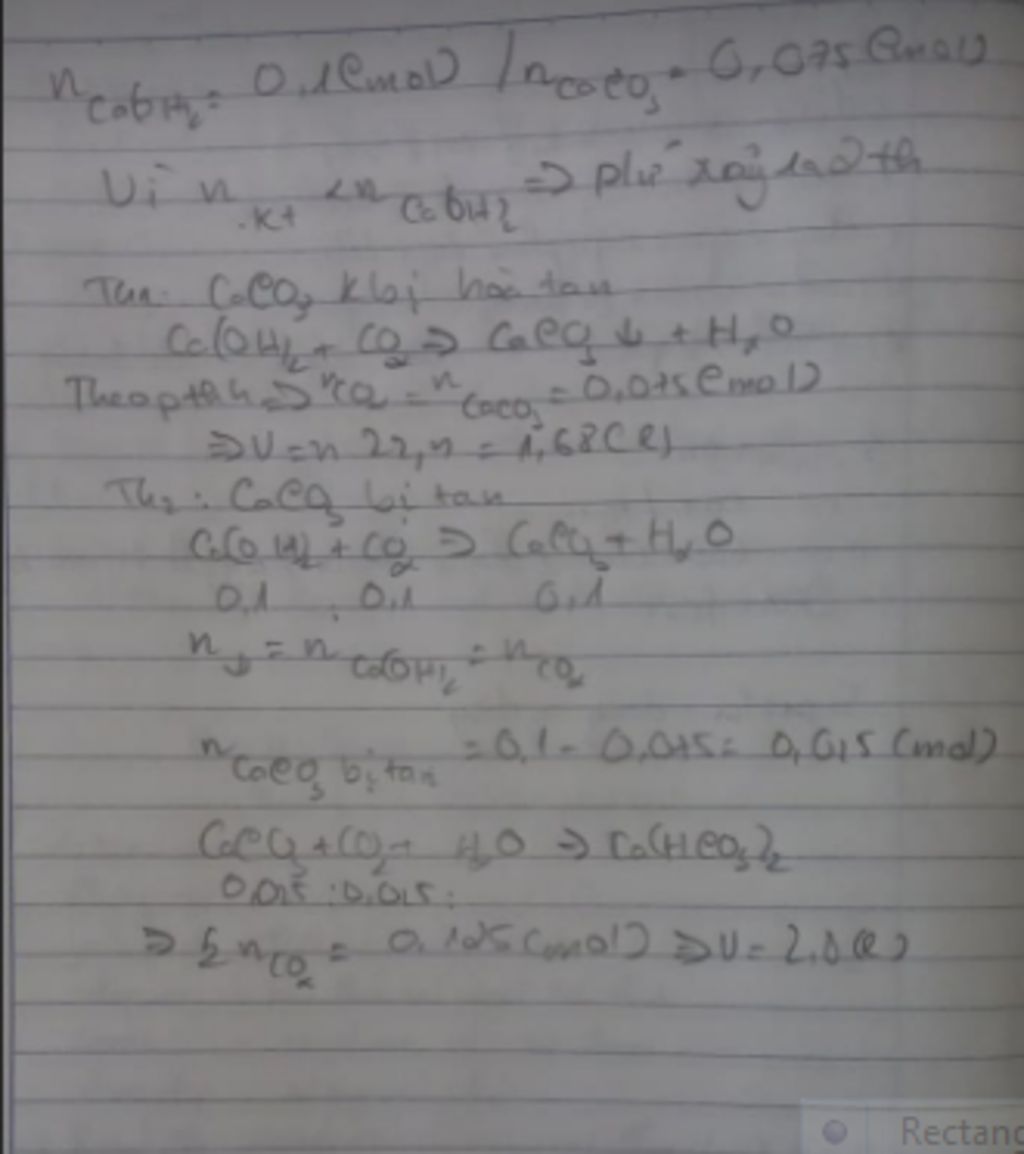 nCa(OH)2 = 0,1 (mol) / nCaCO3 = 0,075 (mol)
Vì n.kt < nCa(OH)2 => pứ xảy ra 2 th
Th1: CaCO3 k bị hoà tan
Ca(OH)2 + CO2 => CaCO3 ↓ + H2O
Theo ptth => nCO2 = nCaCO3 = 0,075 (mol)
=> V = n 22,4 = 1,68 (l)
Th2: CaCO3 bị tan
Ca(OH)2 + CO2 => CaCO3 + H2O
0,1 : 0,1 0,1
n↓ = nCa(OH)2 = nCO2
nCaCO3 bị tan = 0,1 - 0,075 = 0,025 (mol)
CaCO3 + CO2 + H2O => Ca(HCO3)2
0,025 : 0,025 :
=> ΣnCO2 = 0,125 (mol) => V = 2,8 (l)
Rectang